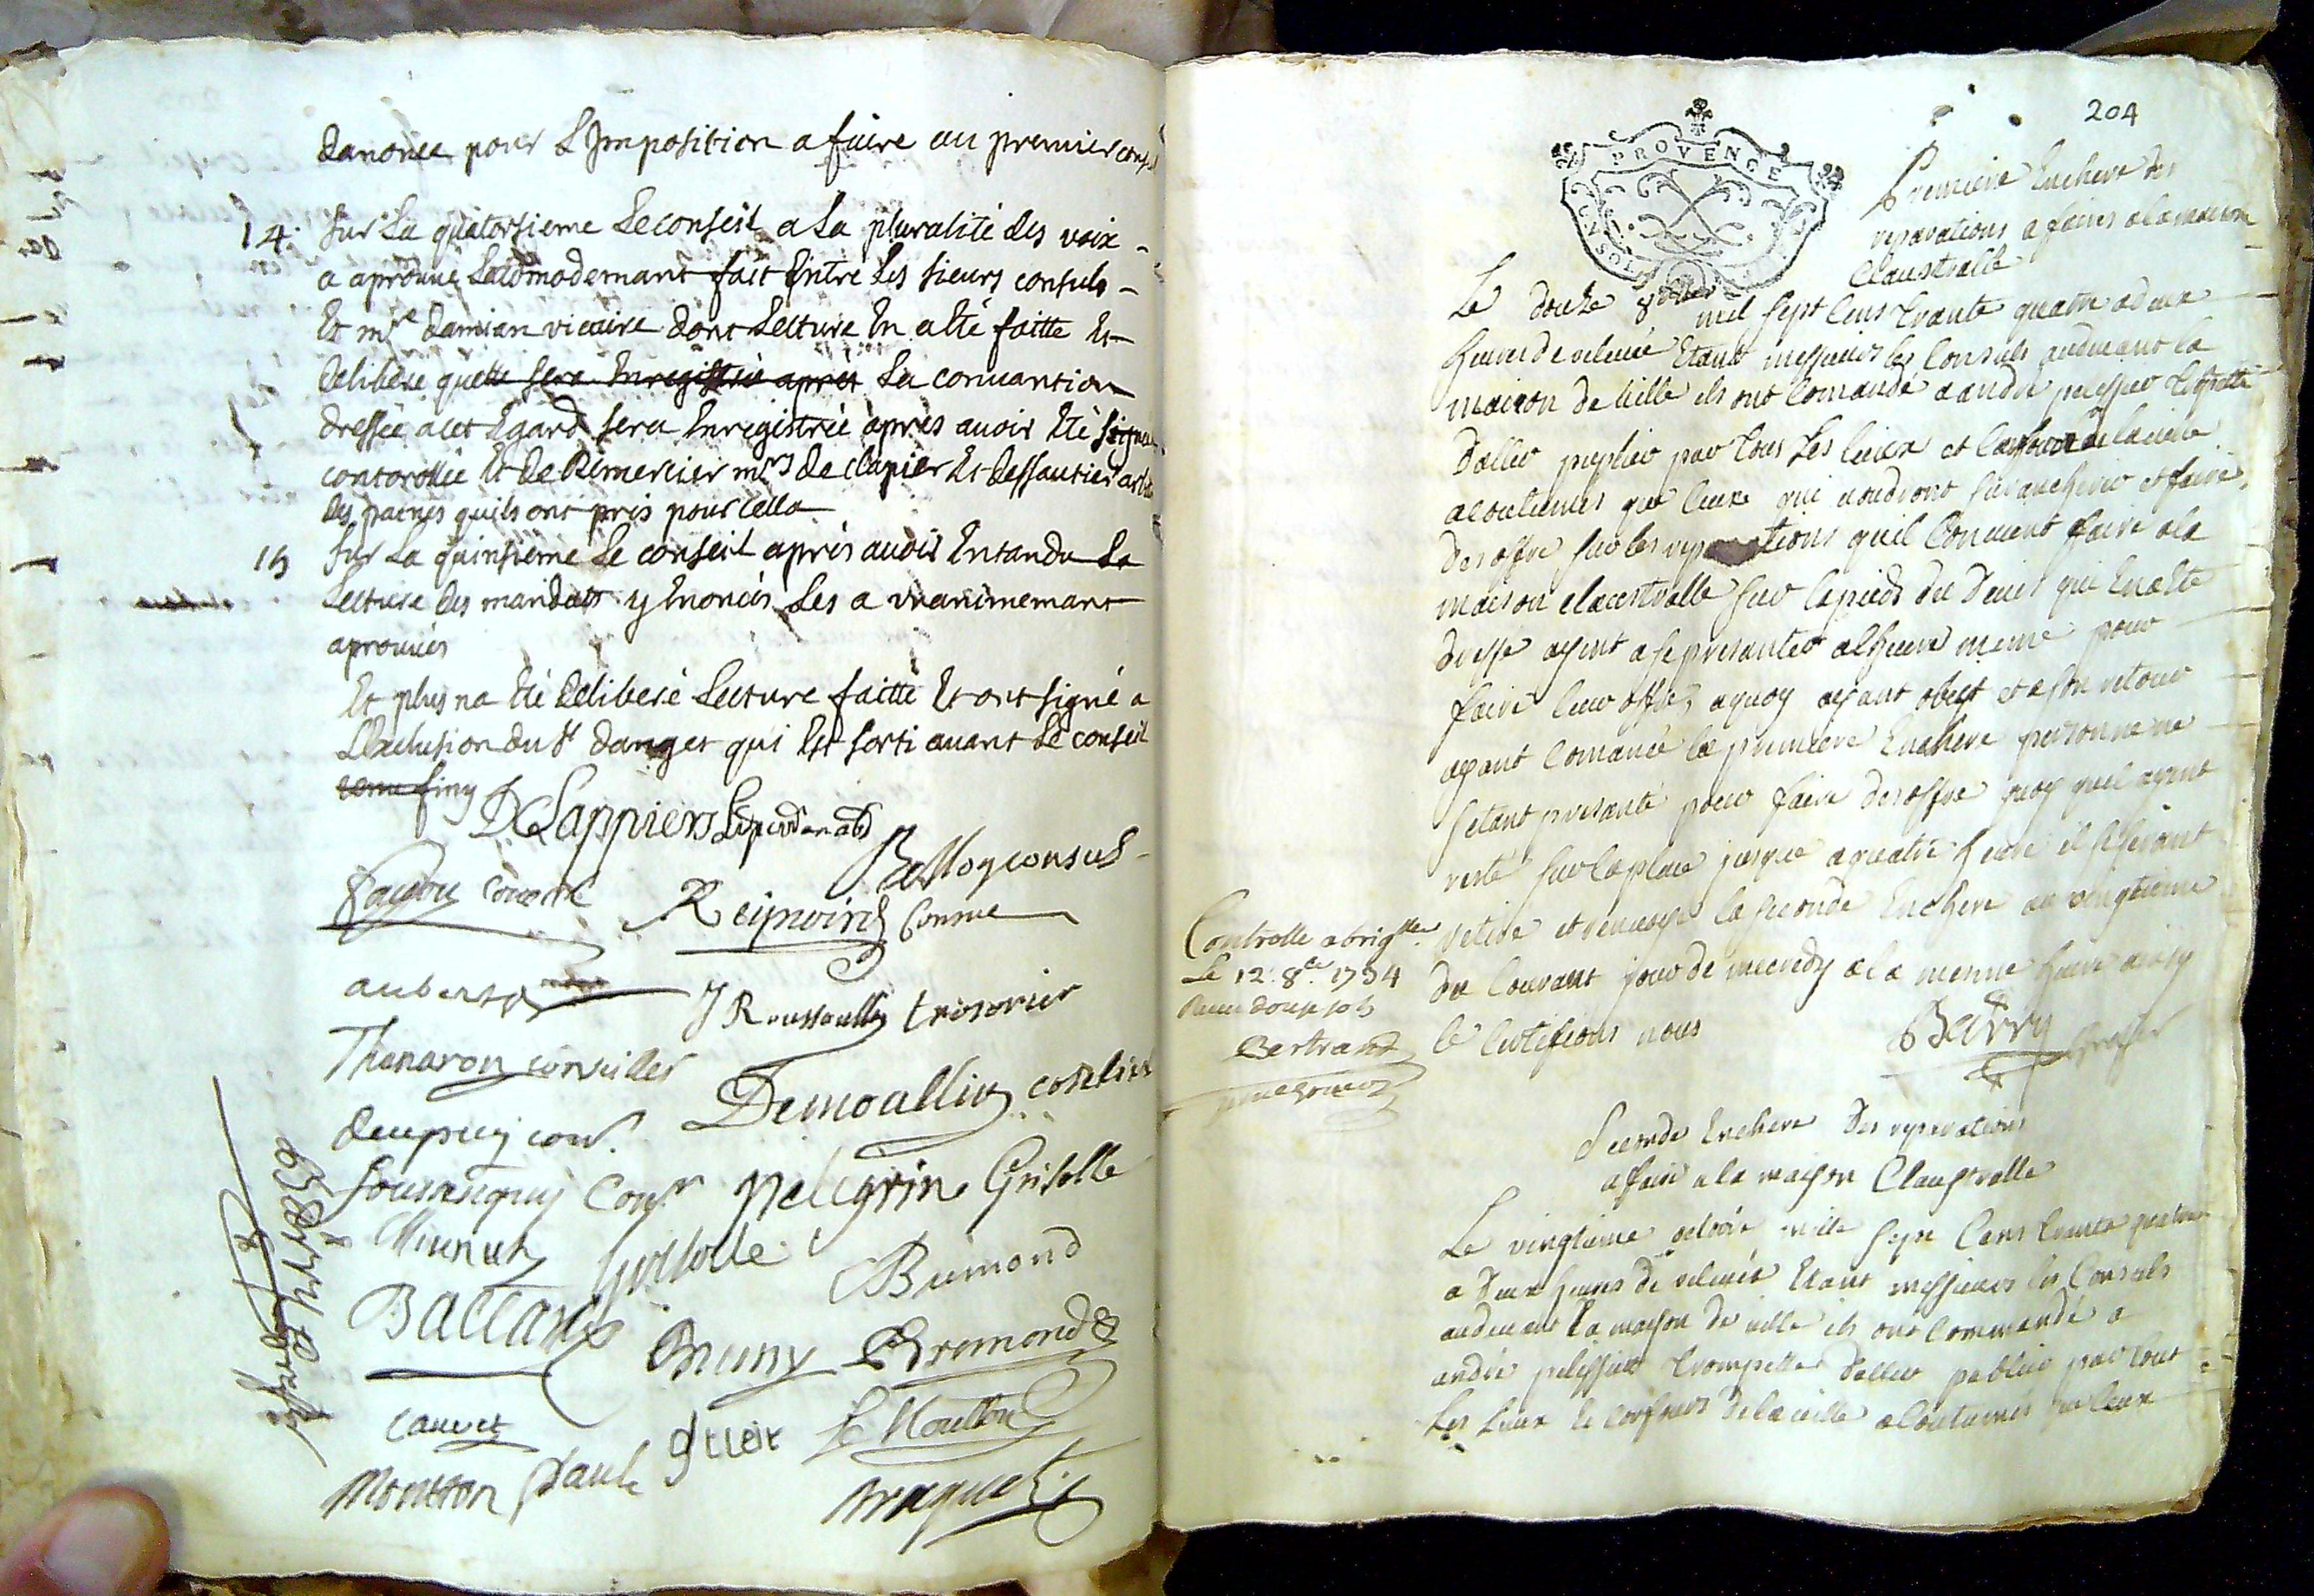 danonce pour L'Imposition a faire au premier
14. Sur La quatorsieme Le conseil a La pluralité des voix
a aprouué Lacomodemant fait Entre Les sieurs consuls
Et mre damian vicaire dont Lecture En a Eté faitte Et
deliberé quelle sera Enregistrée aprés La conuantion
dressée a cet Egard sera Enregistrée aprés auoir Eté
contorollée Et de Remercier mrs de clapier Et dessautier
des paines quils ont pris pour cella
15 Sur La quinsieme Le conseil aprés auoir Entandu La
Lecture des mandats y Enoncés Les a vnanimemant
aprouués
Et plus na Eté deliberé Lecture faitte Et ont signé a
L'Exclusion du Sr danger qui Est sorti auant Le conseil
finy
D Clappiers
Balloy consul
Reimoird
aubert
J Roussoulles tresorier
Thanaron conseiller
Demoallin
deupuy con
pelegrin Grisolle
Minuty Grisolle Bremond
Ballard
Bruny Bremond
cauvet
Mouton Paul
204
PROVENCE
Premiere Enchere des
reparations a faires a la maison
Claustralle
Le douze 8bre mil sept Cens trante quatre a deux
heures de releuée Etant messieurs les Consuls audeuant la
maison de uille ils ont Comandé a andré pelissier
daller puplier par tous Les lieux et de la uille
acoutumés que Ceux qui uoudront suranchérir et faire
des offre sur les reparations quil Conuient faire a la
maison claustralle sur le pieds du deuis qui En a Eté
dressé ayent a se presanter a lheure meme pour
faire leur offre, a quoy ayant obeyt et a son retour
ayant Comancé la premiere Enchere personne ne
setant presanté pour faire des offre quoy quil ayent
resté sur la place jusque a quatre heure il se seront
retiré et renuoyé la seconde Enchere au vingtieme
du Courant jour de mecredy a la meme heure ainsy
le Certifions nous
Barry greffier
Controllé a briglles
Le 12. 8bre 1734
Receu douze sols
Bertrand
Seconde Enchere des reparations
a faire a la maison Claustralle
Le vingtieme octobre mille sept Cens trante quatre
a deux heures de releuée Etant messieurs les Consuls
audeuant La maison de uille ils ont Commandé a
andré pelissier trompette daller publier par tout
Les Lieux de la uille acoutumés que Ceux